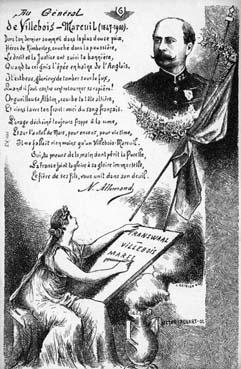 Au Général
(6)
de Villebois-Mareuil (1847-1900).
Dors ton dernier sommeil dans la plus douce paix,
Héros de Kimberley, couché dans la poussière,
Le droit et la Justice ont suivi ta bannière,
Quand tu croisas l'épée en haine de l'Anglais,
Il est beau, glorieux, de tomber sous le faix,
Quand il faut contre cent retourner sa rapière!
Orgueilleuse Albion, courbe la tête altière,
Et viens laver ton front: moi du sang français.
L'orage déchaîné toujours frappe à la cime,
Et sur l'autel de Mars, pour encens, pour victime,
Il ne fallait rien moins qu'un Villebois-Mareuil.
Qui
de la main dont périt la Pucelle,
La France joint ta gloire à sa gloire immortelle,
Et fière de ses fils, vous unit dans son deuil.
N. Allemand.
TRANSWAAL
VILLEBOIS
MAREUIL